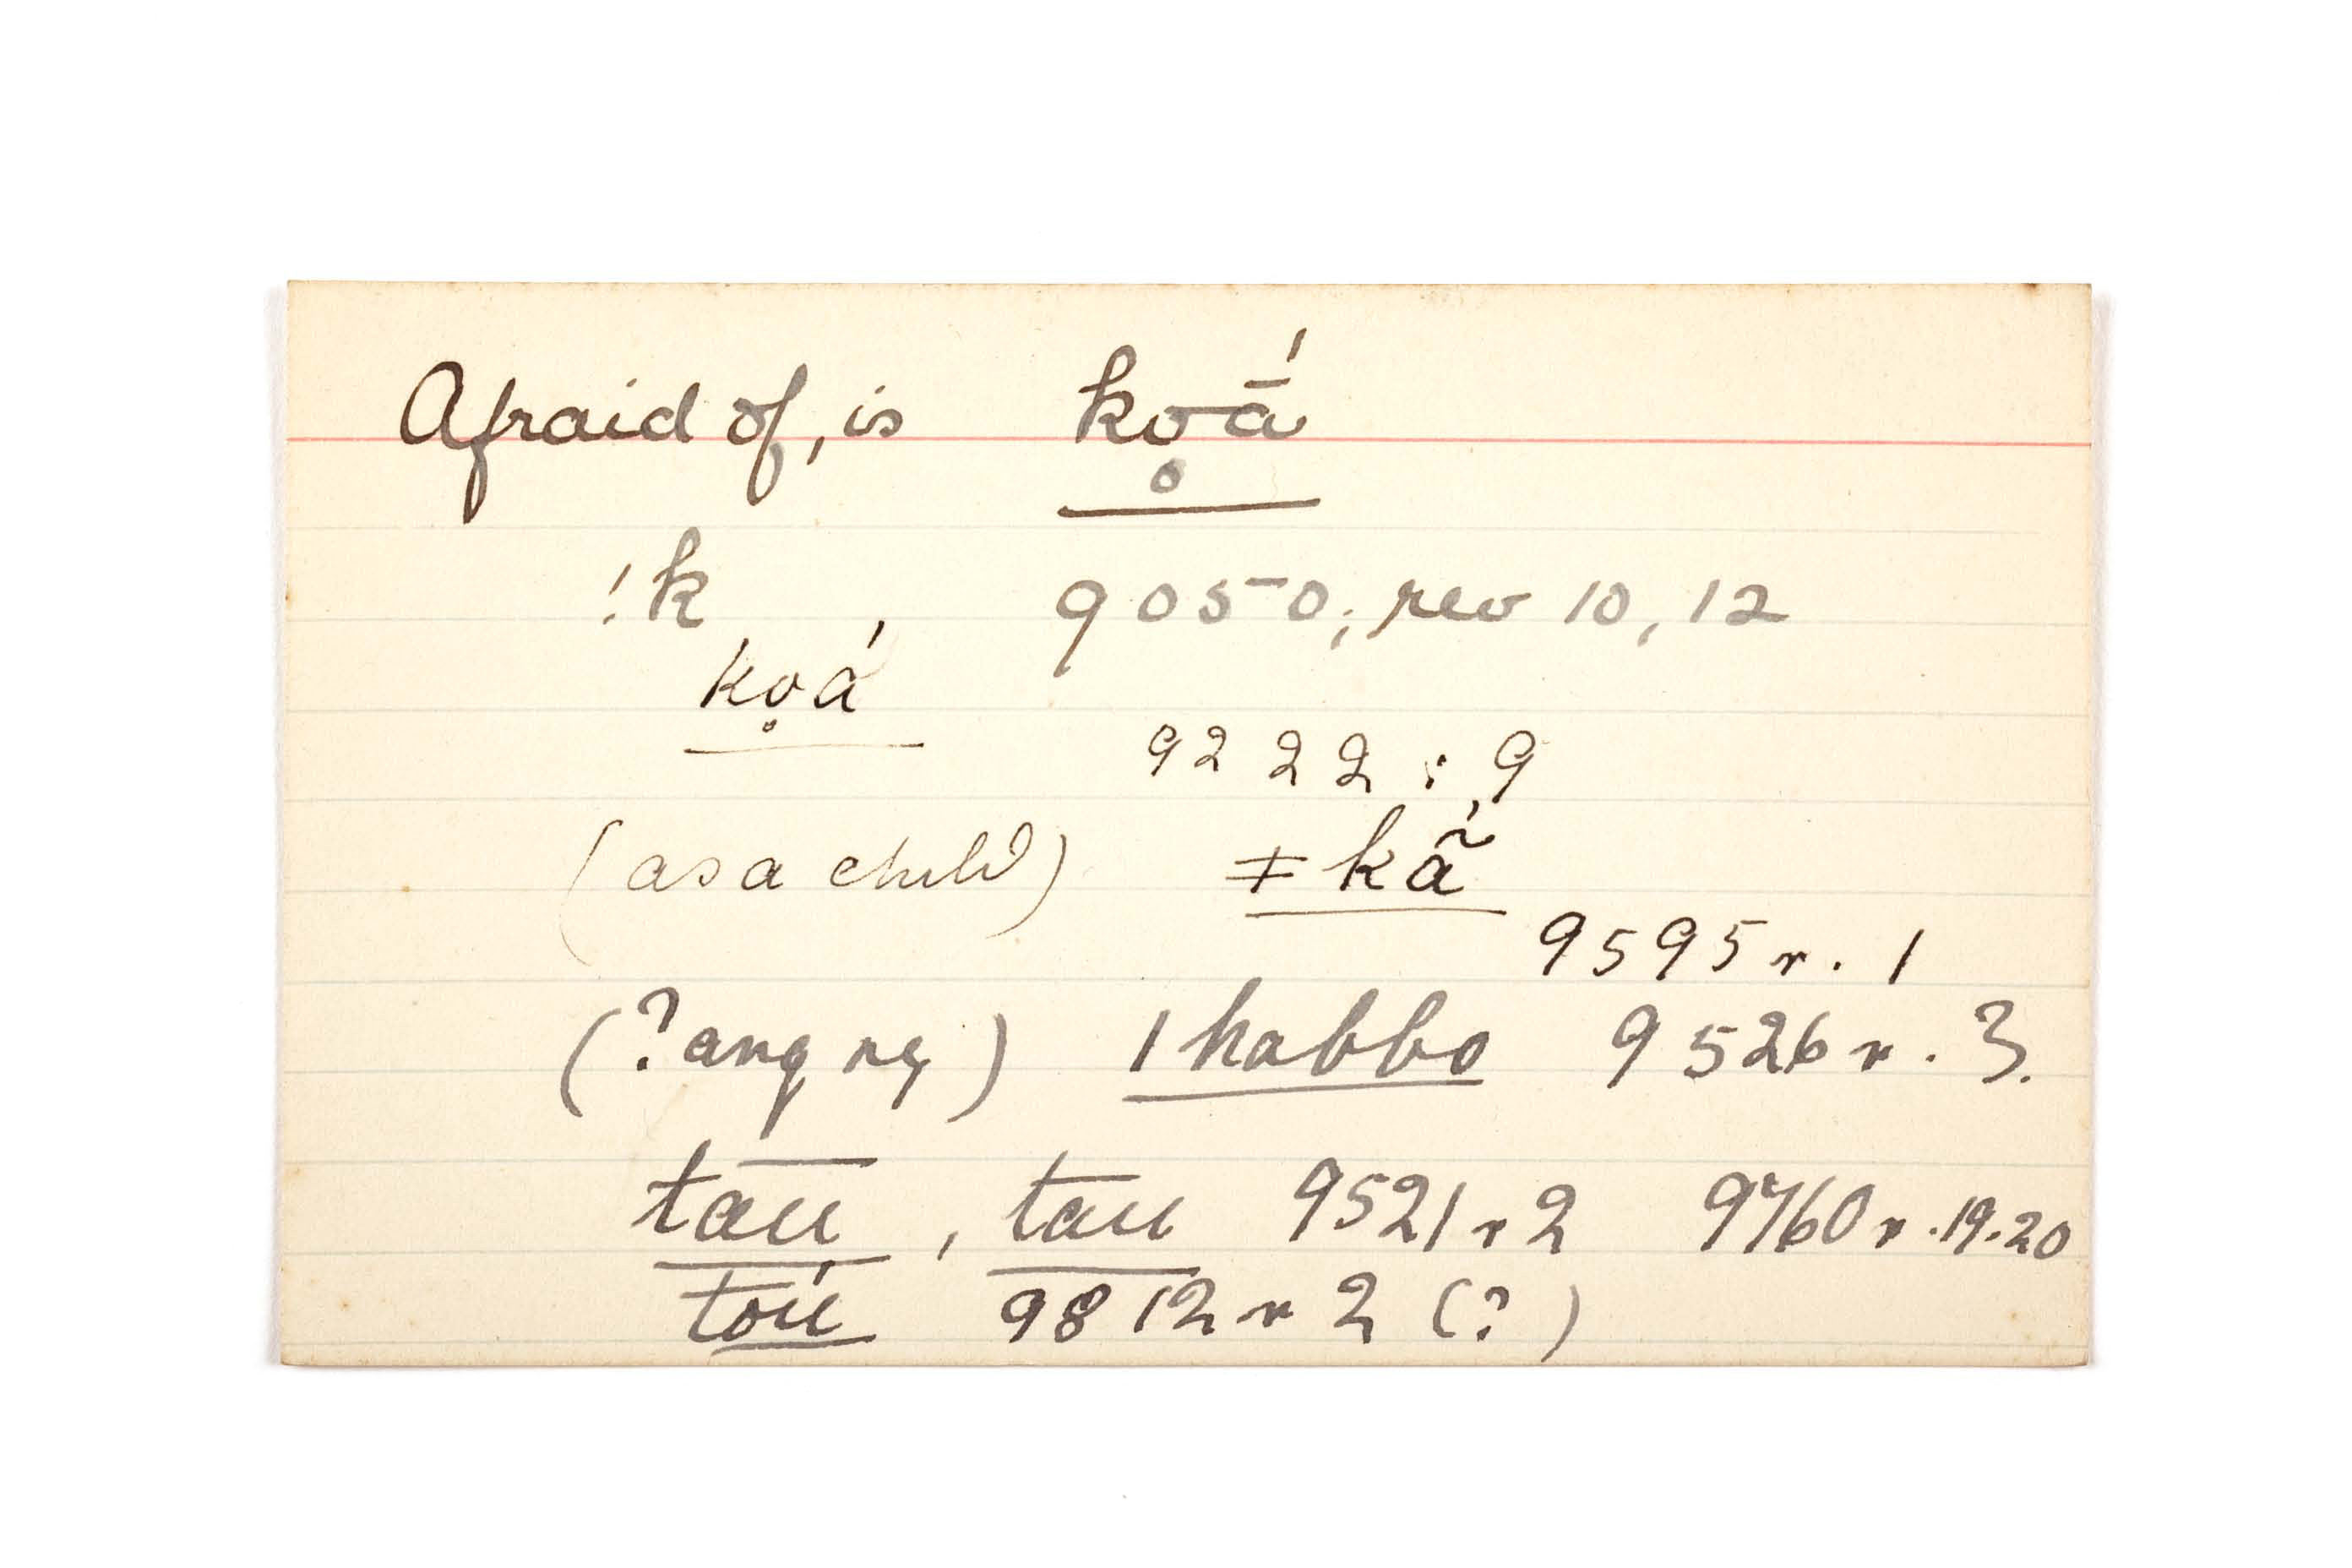 Afraid of, is ko̥ā́
!k 9050; rev 10, 12
ko̥á
9222 : 9
(as a child) ǂkã́
9595 r. 1
(? ang ry) |habbo 9526 r. 3.
tau̅, tau 9521 r 2 9760 r. 19.20
toú 9812 r 2 (?)